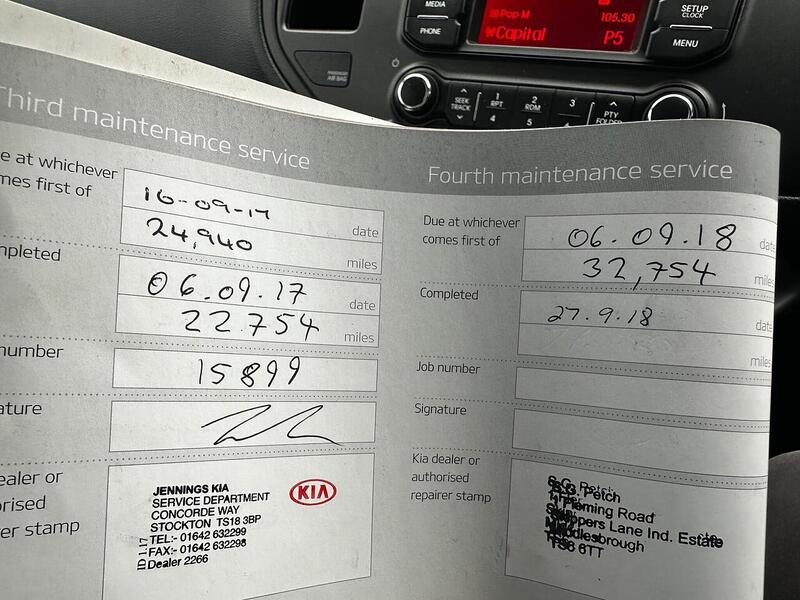 MEDIA
PHONE
Pop M
105.30
Capital
P5
SETUP
CLOCK
MENU
PASSENGER
AIR BAG
SEEK
TRACK
1
RPT
2
RDM
3
4
5
PTY
FOLDER
Third maintenance service
e at whichever
mes first of
16-09-17
date
24,940
miles
mpleted
06.09.17
date
22.754
miles
number
15899
ature
ealer or
orised
rer stamp
JENNINGS KIA
SERVICE DEPARTMENT
CONCORDE WAY
STOCKTON TS18 3BP
TEL:- 01642 632299
FAX:- 01642 632298
Dealer 2266
KIA
Fourth maintenance service
Due at whichever
comes first of
06.09.18
date
32,754
miles
Completed
27.9.18
date
miles
Job number
Signature
Kia dealer or
authorised
repairer stamp
S.G. Petch
Fleming Road
Skippers Lane Ind. Estate
Middlesbrough
TS6 6TT